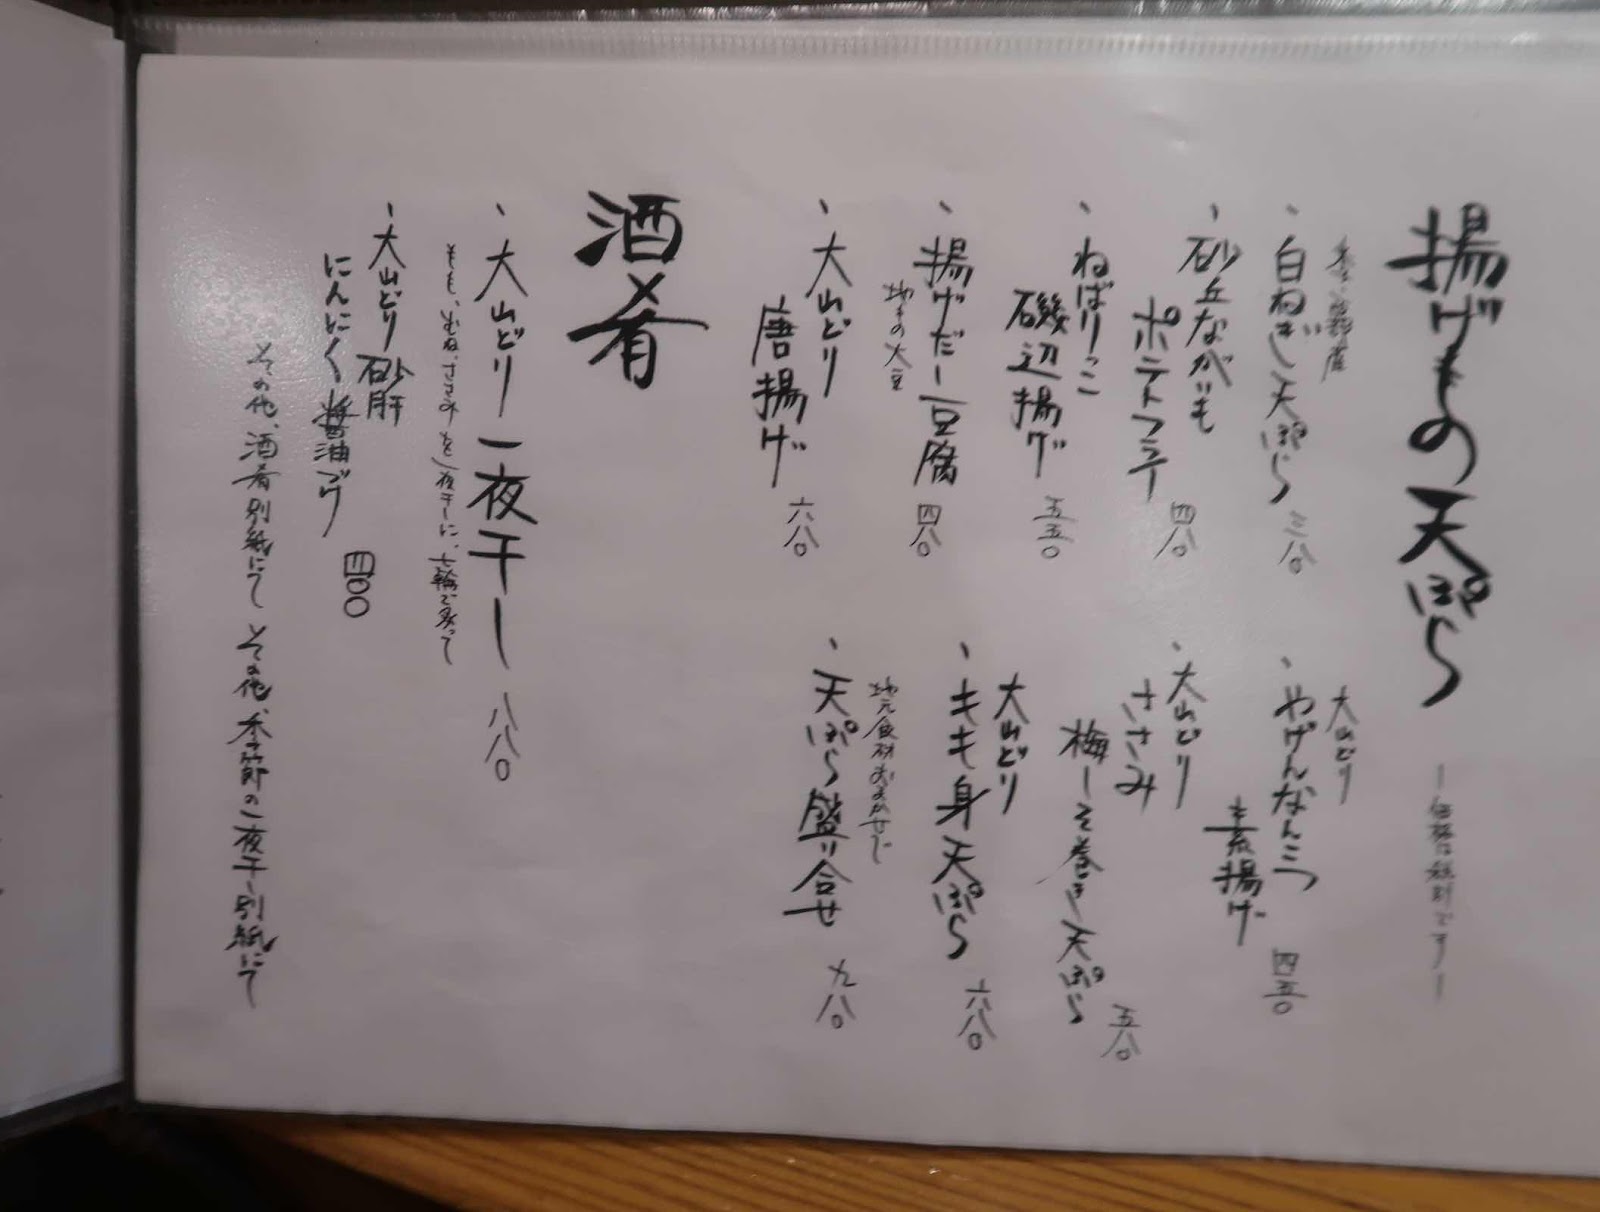 揚げもの天ぷら
ー価格は税別ですー
白ねぎ天ぷら 三八〇
砂丘ながいも
ポテトフライ 四八〇
ねばりっこ
磯辺揚げ 五五〇
揚げだし豆腐 四八〇
地もの大豆
大山どり
唐揚げ 六八〇
大山どり
やげんなんこつ
素揚げ 四五〇
大山どり
ささみ
梅しそ巻き天ぷら 五八〇
大山どり
キモ身天ぷら 六八〇
地元食材おまかせで
天ぷら盛り合せ 九八〇
酒肴
大山どり一夜干し 八八〇
もも、むね、ささみを一夜干しに、七輪で炙って
大山どり砂肝
にんにく醤油づけ 四〇〇
その他、酒肴別紙にて その他、季節の一夜干し別紙にて